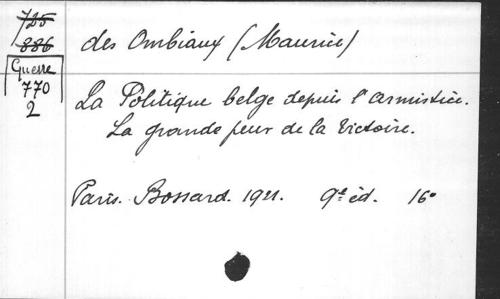 725
886
Guerre
770
2
des Ombiaux (Maurice)
La Politique belge depuis l'armistice.
La grande peur de la Victoire.
Paris. Bossard. 1921. 9e éd. 16°